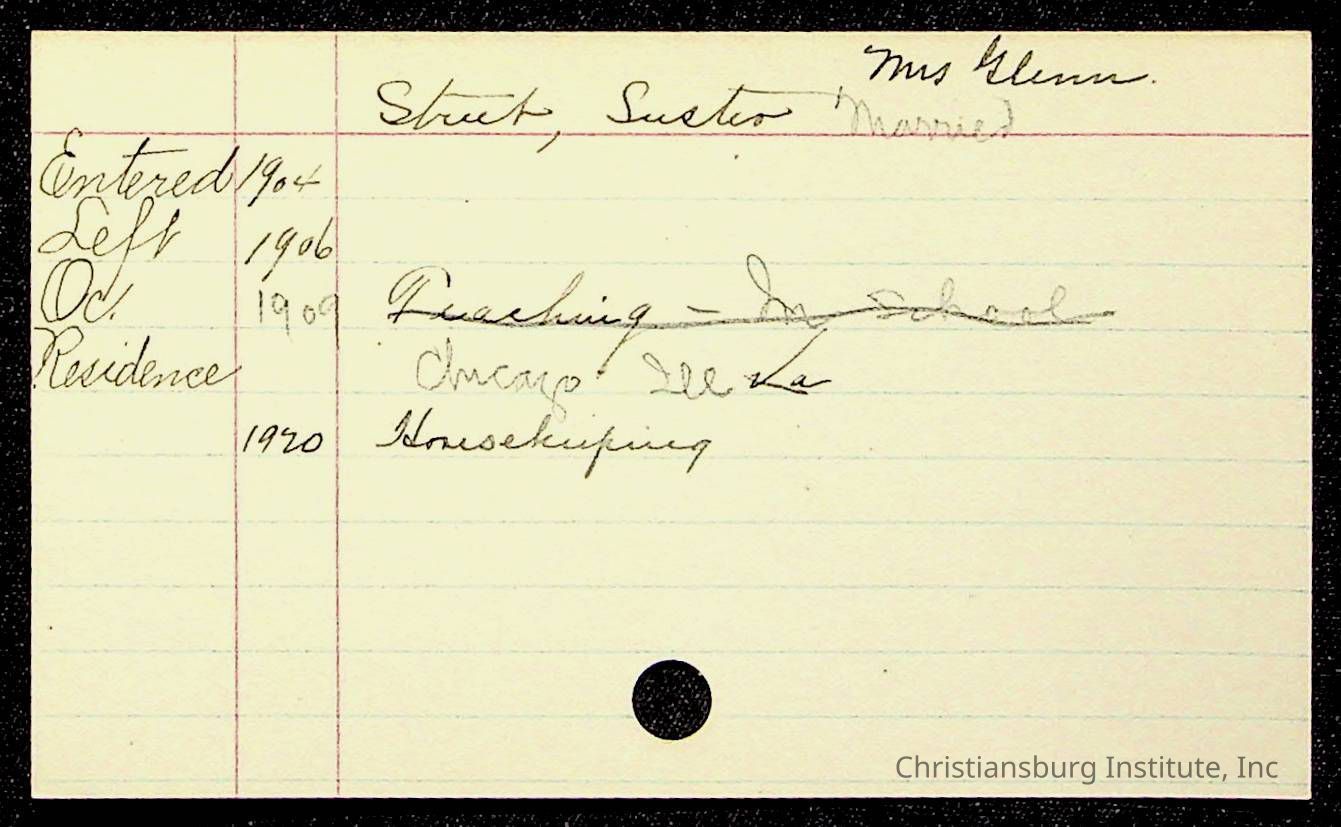 Mrs Glenn.
Street, Susteo Married
Entered 1904
Left 1906
Oc. 1909 Teaching - In School
Residence Chicago Ill Va
1920 Housekeeping
Christiansburg Institute, Inc